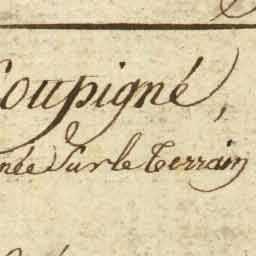 Coupigné,
née Sur le Terrain